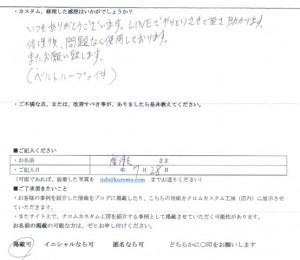 ・カスタム、修理した感想はいかがでしょうか?
いつもありがとうございます。LINEでやりとりさせて頂き助かります。
修理後、問題なく使用しております。
またお願い致します。
(ベルトループの件)
・ご不満な点、または、改善すべき事が、ありましたら是非教えてください。
■ご記入ください
・お名前 さま
・ご記入日 年 7月 28日
(可能であれば、装着した写真を info@kuromu.com までお送りください)
■ご了承頂きたいこと
・お客様の事例を紹介した情報をブログに掲載したり、こちらの用紙をクロムカスタム工房(店内)に展示させていただきます。
・またサイト上で、クロムカスタム工房を紹介する事例として掲載させていただく可能性があります。
お名前の掲載の可能な方は、ぜひお申し付けください。
掲載可 イニシャルなら可 匿名なら可 どちらかに〇印をお願いします